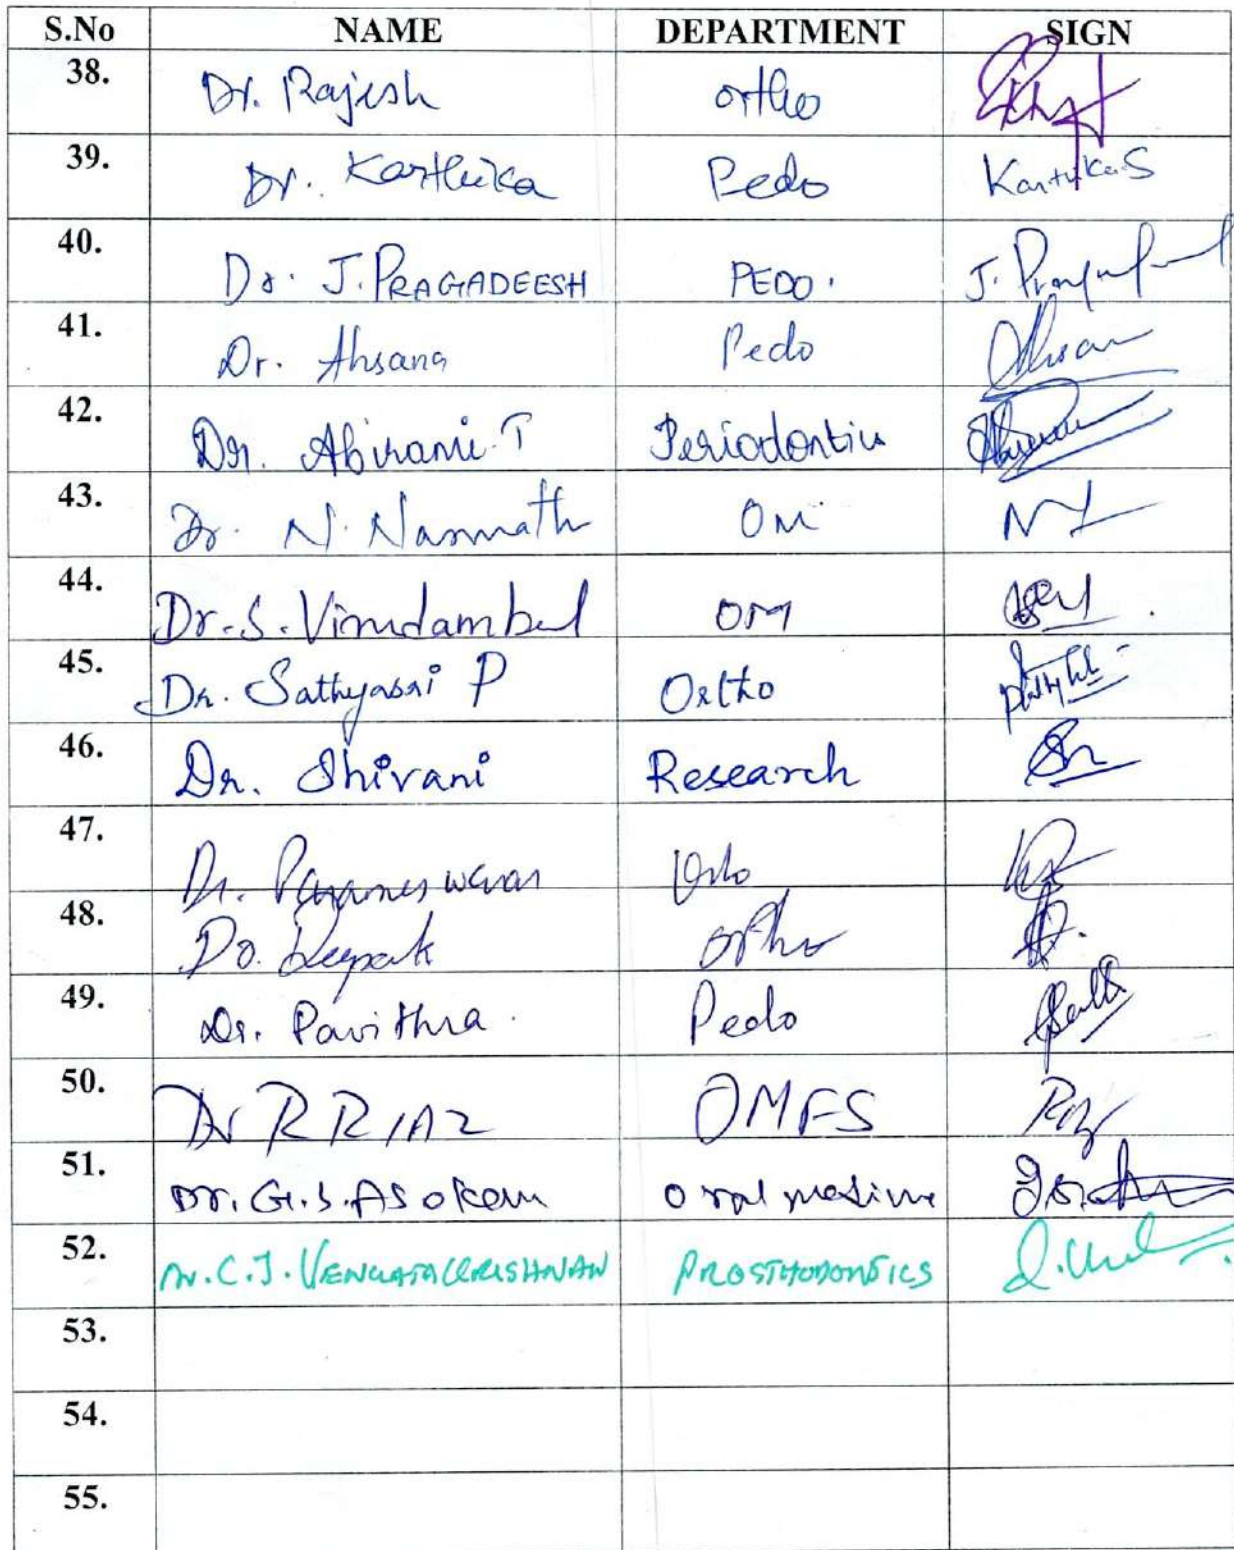 S.No NAME DEPARTMENT SIGN
38. Dr. Rajesh ortho
39. Dr. Karthika Pedo Karthika S
40. Dr. J. PRAGADEESH PEDO. J.
41. Dr. Ahsana Pedo Ahsan
42. Dr. Abirami. T Periodontics
43. Dr. N. Nammath OM
44. Dr. S. OM
45. Dr. Sathyasai P Ortho
46. Dr. Shivani Research
47. Dr. Parameswaran
48. Dr. Deepak ortho
49. Dr. Pavithra. Pedo
50. Dr R RIAZ OMFS
51. Dr. G.S. ASokan oral medicine
52. Dr. C.J. VENKATAKRISHNAN PROSTHODONTICS
53.
54.
55.